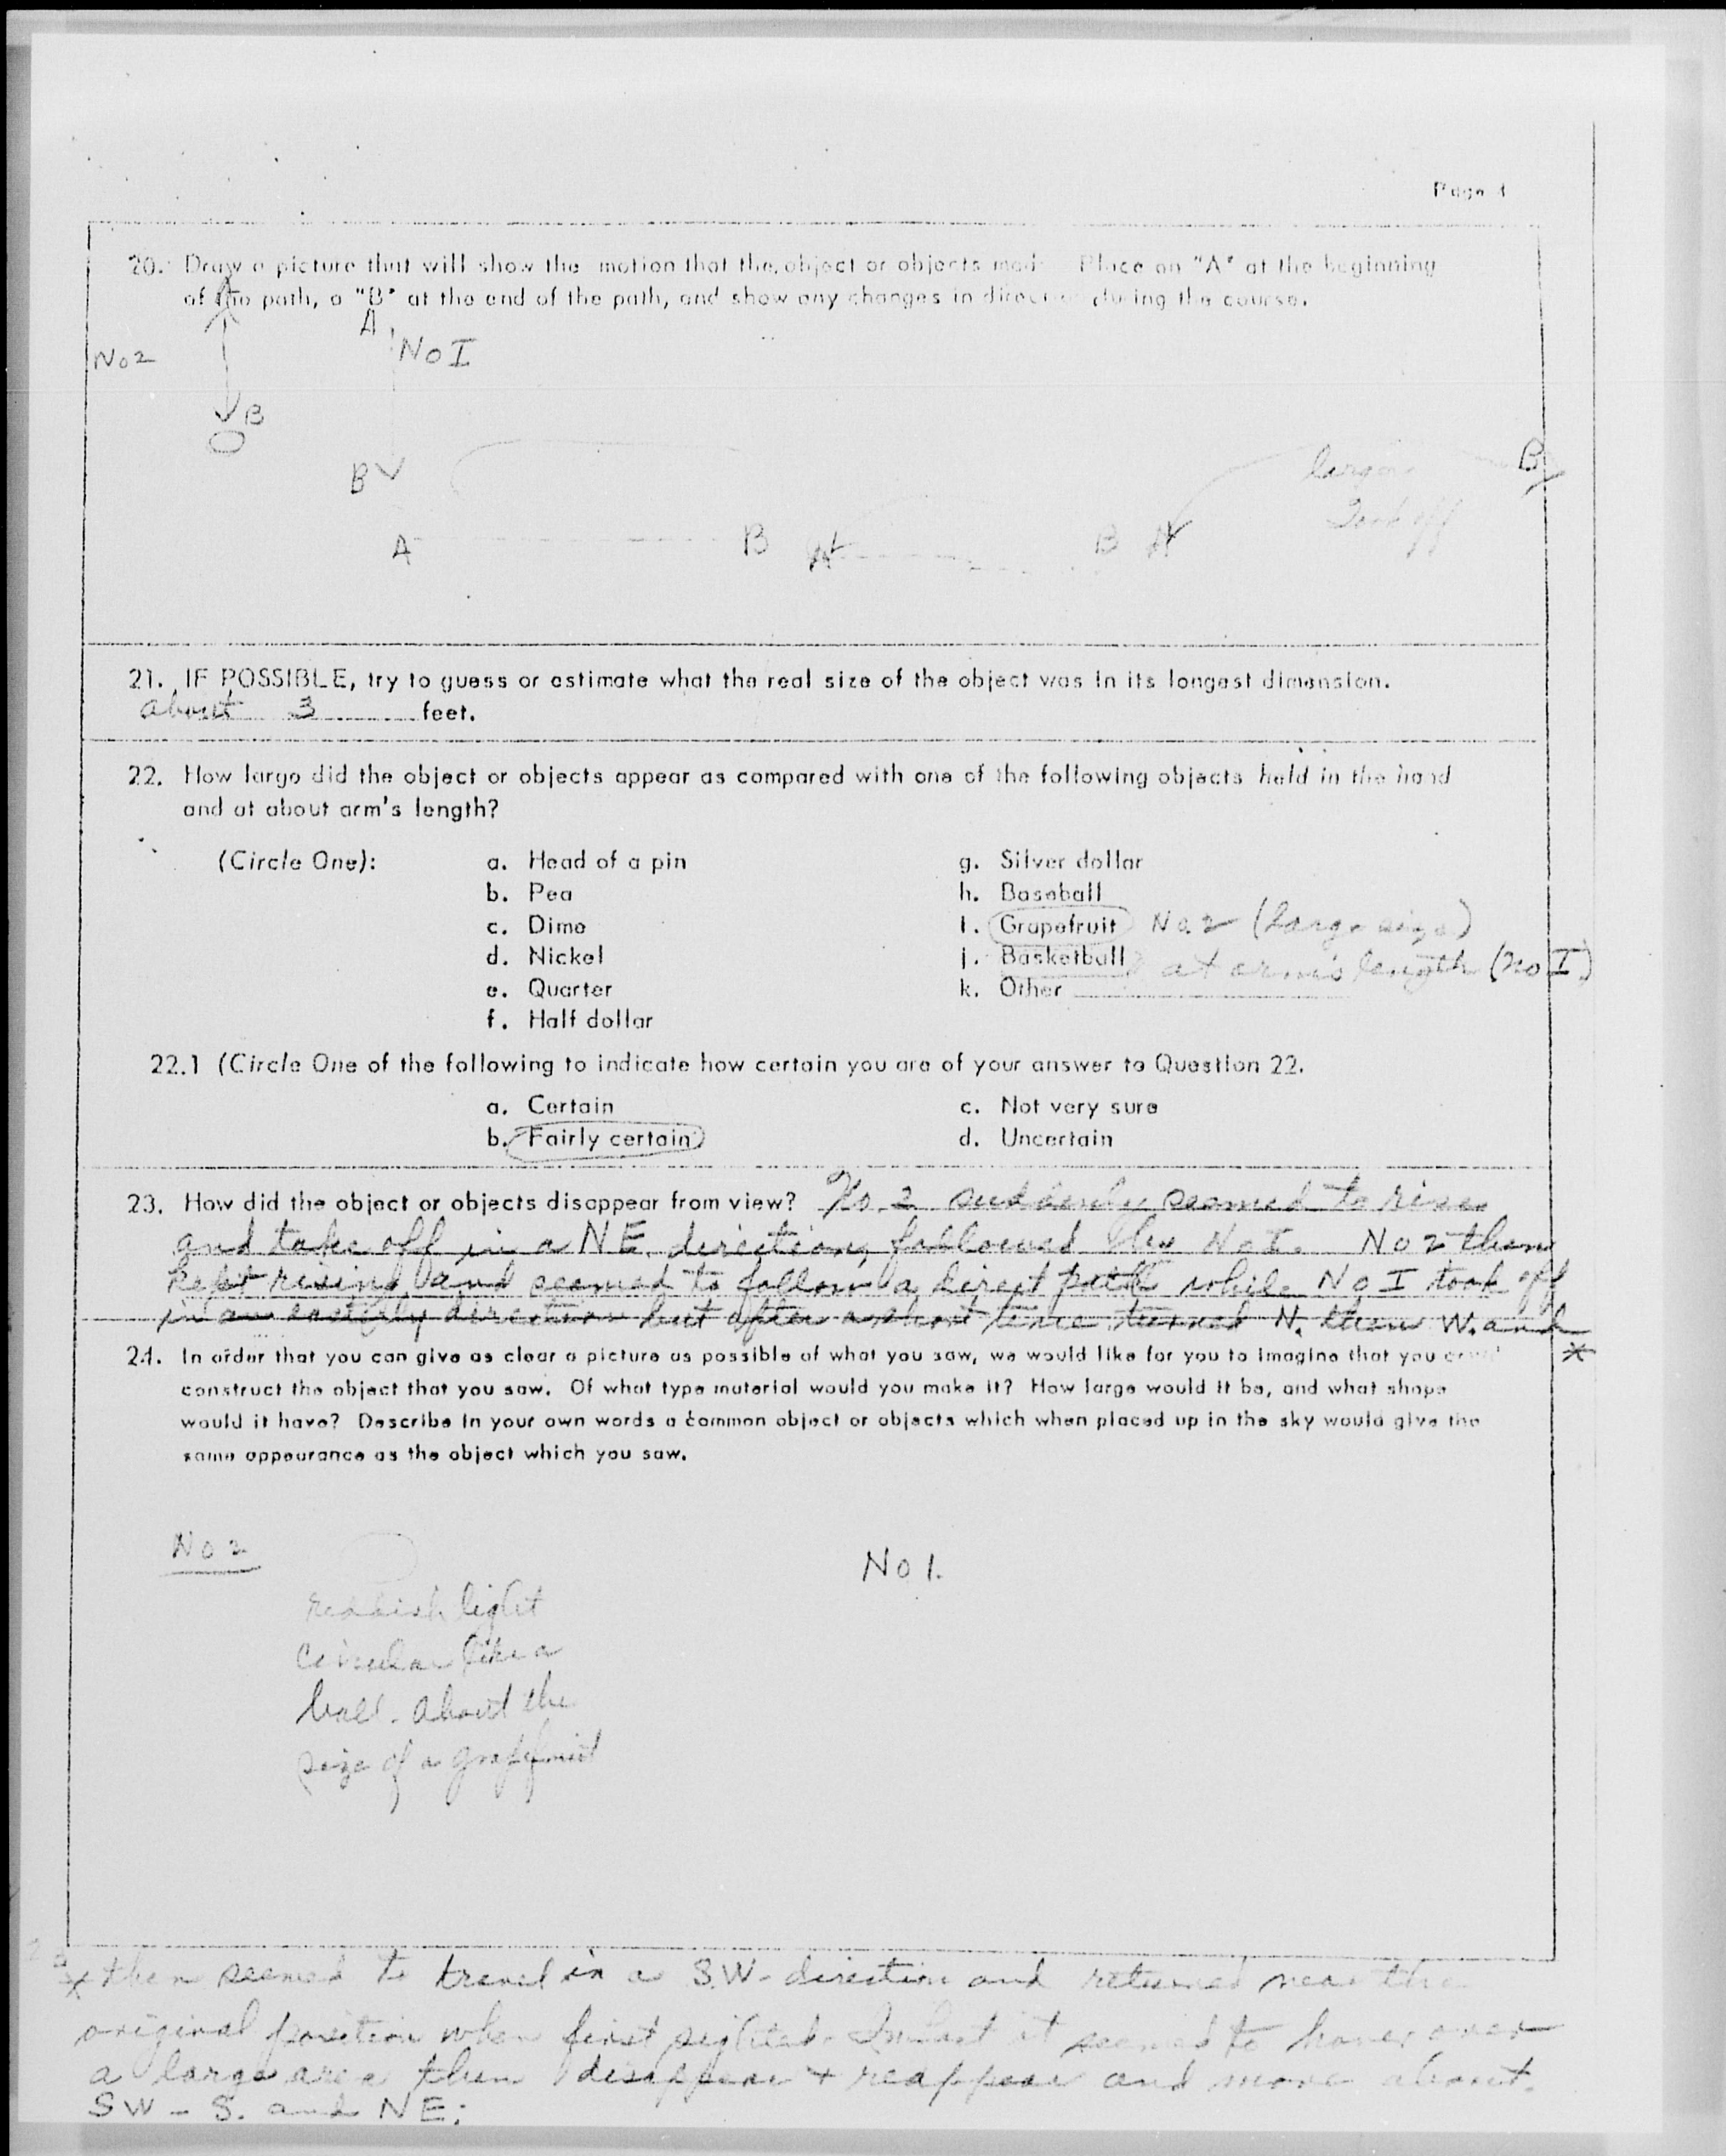 Page 4
20. Draw a picture that will show the motion that the object or objects made Place an "A" at the beginning
of the path, a "B" at the end of the path, and show any changes in direction during the course.
A
No 2
No I
B
B
larger
B
took off
A B A B A
21. IF POSSIBLE, try to guess or estimate what the real size of the object was in its longest dimension.
about 3 feet.
22. How large did the object or objects appear as compared with one of the following objects held in the hand
and at about arm's length?
(Circle One): a. Head of a pin g. Silver dollar
b. Pea h. Baseball
c. Dime i. Grapefruit No. 2 (large size)
d. Nickel j. Basketball at arm's length (No I)
e. Quarter k. Other
f. Half dollar
22.1 (Circle One of the following to indicate how certain you are of your answer to Question 22.
a. Certain c. Not very sure
b. Fairly certain d. Uncertain
23. How did the object or objects disappear from view? No. 2 suddenly seemed to rise
and take off in a NE. direction, followed by No I. No 2 then
kept rising and seemed to follow a direct path while No I took off
in an easterly direction but after a short time turned N. then W. and
*
24. In order that you can give as clear a picture as possible of what you saw, we would like for you to imagine that you could
construct the object that you saw. Of what type material would you make it? How large would it be, and what shape
would it have? Describe in your own words a common object or objects which when placed up in the sky would give the
same appearance as the object which you saw.
No 2
No 1.
reddish light
circular like a
ball. About the
size of a grapefruit
* then seemed to travel in a S.W. direction and returned near the
original position when first sighted. In fact it seemed to hover over
a large area then disappear + reappear and move about.
SW - S. and NE: